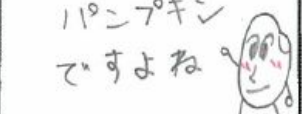 パンプキン
ですよね